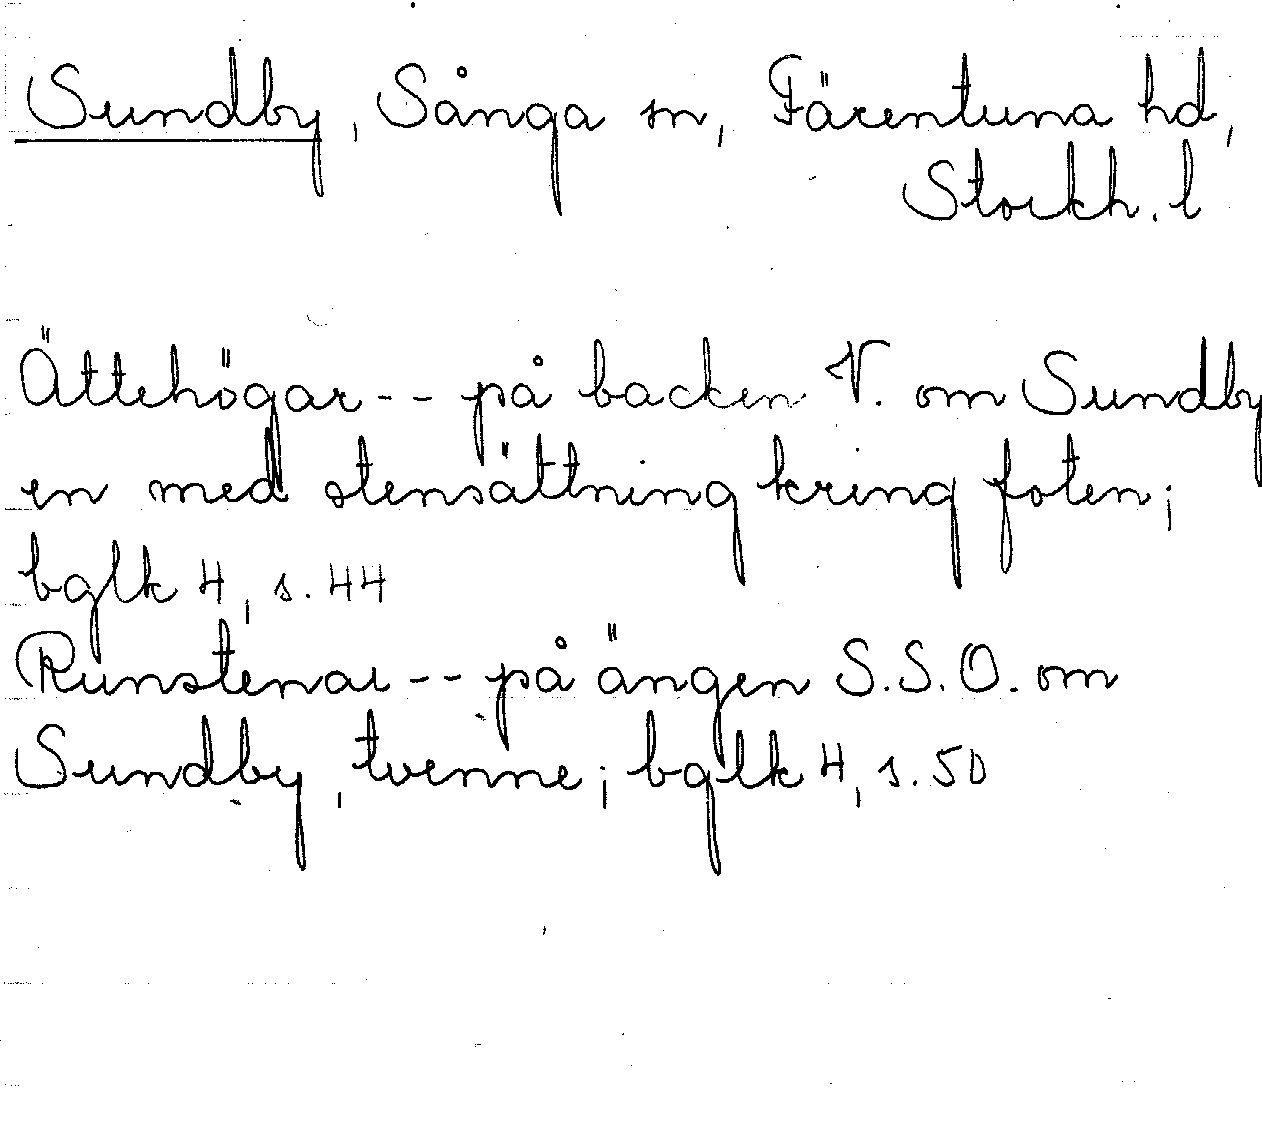 Sundby, Sånga sn, Färentuna hd,
Stockh. l
Ättehögar -- på backen V. om Sundby
en med stensättning kring foten;
bglk 4, s. 44
Runstenar -- på ängen S.S.O. om
Sundby, tvenne; bglk 4, s. 50